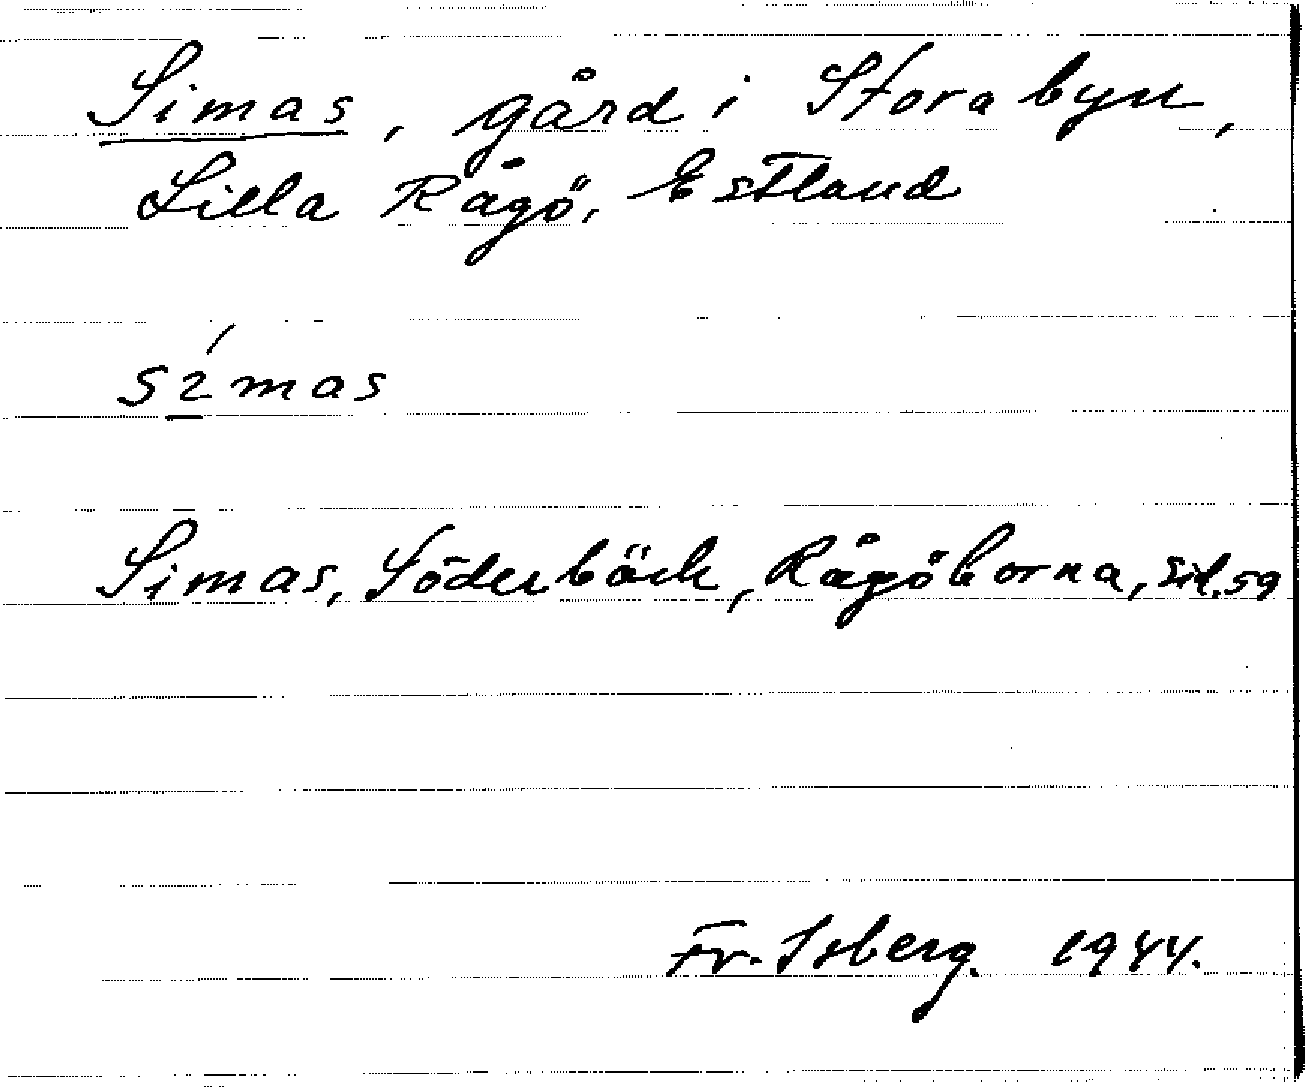 Simas, gård i Stora byn,
Lilla Rågö, Estland
símas
Simas, Söderbäck, Rågöborna, sid. 59
Fr. Isberg. 1944.